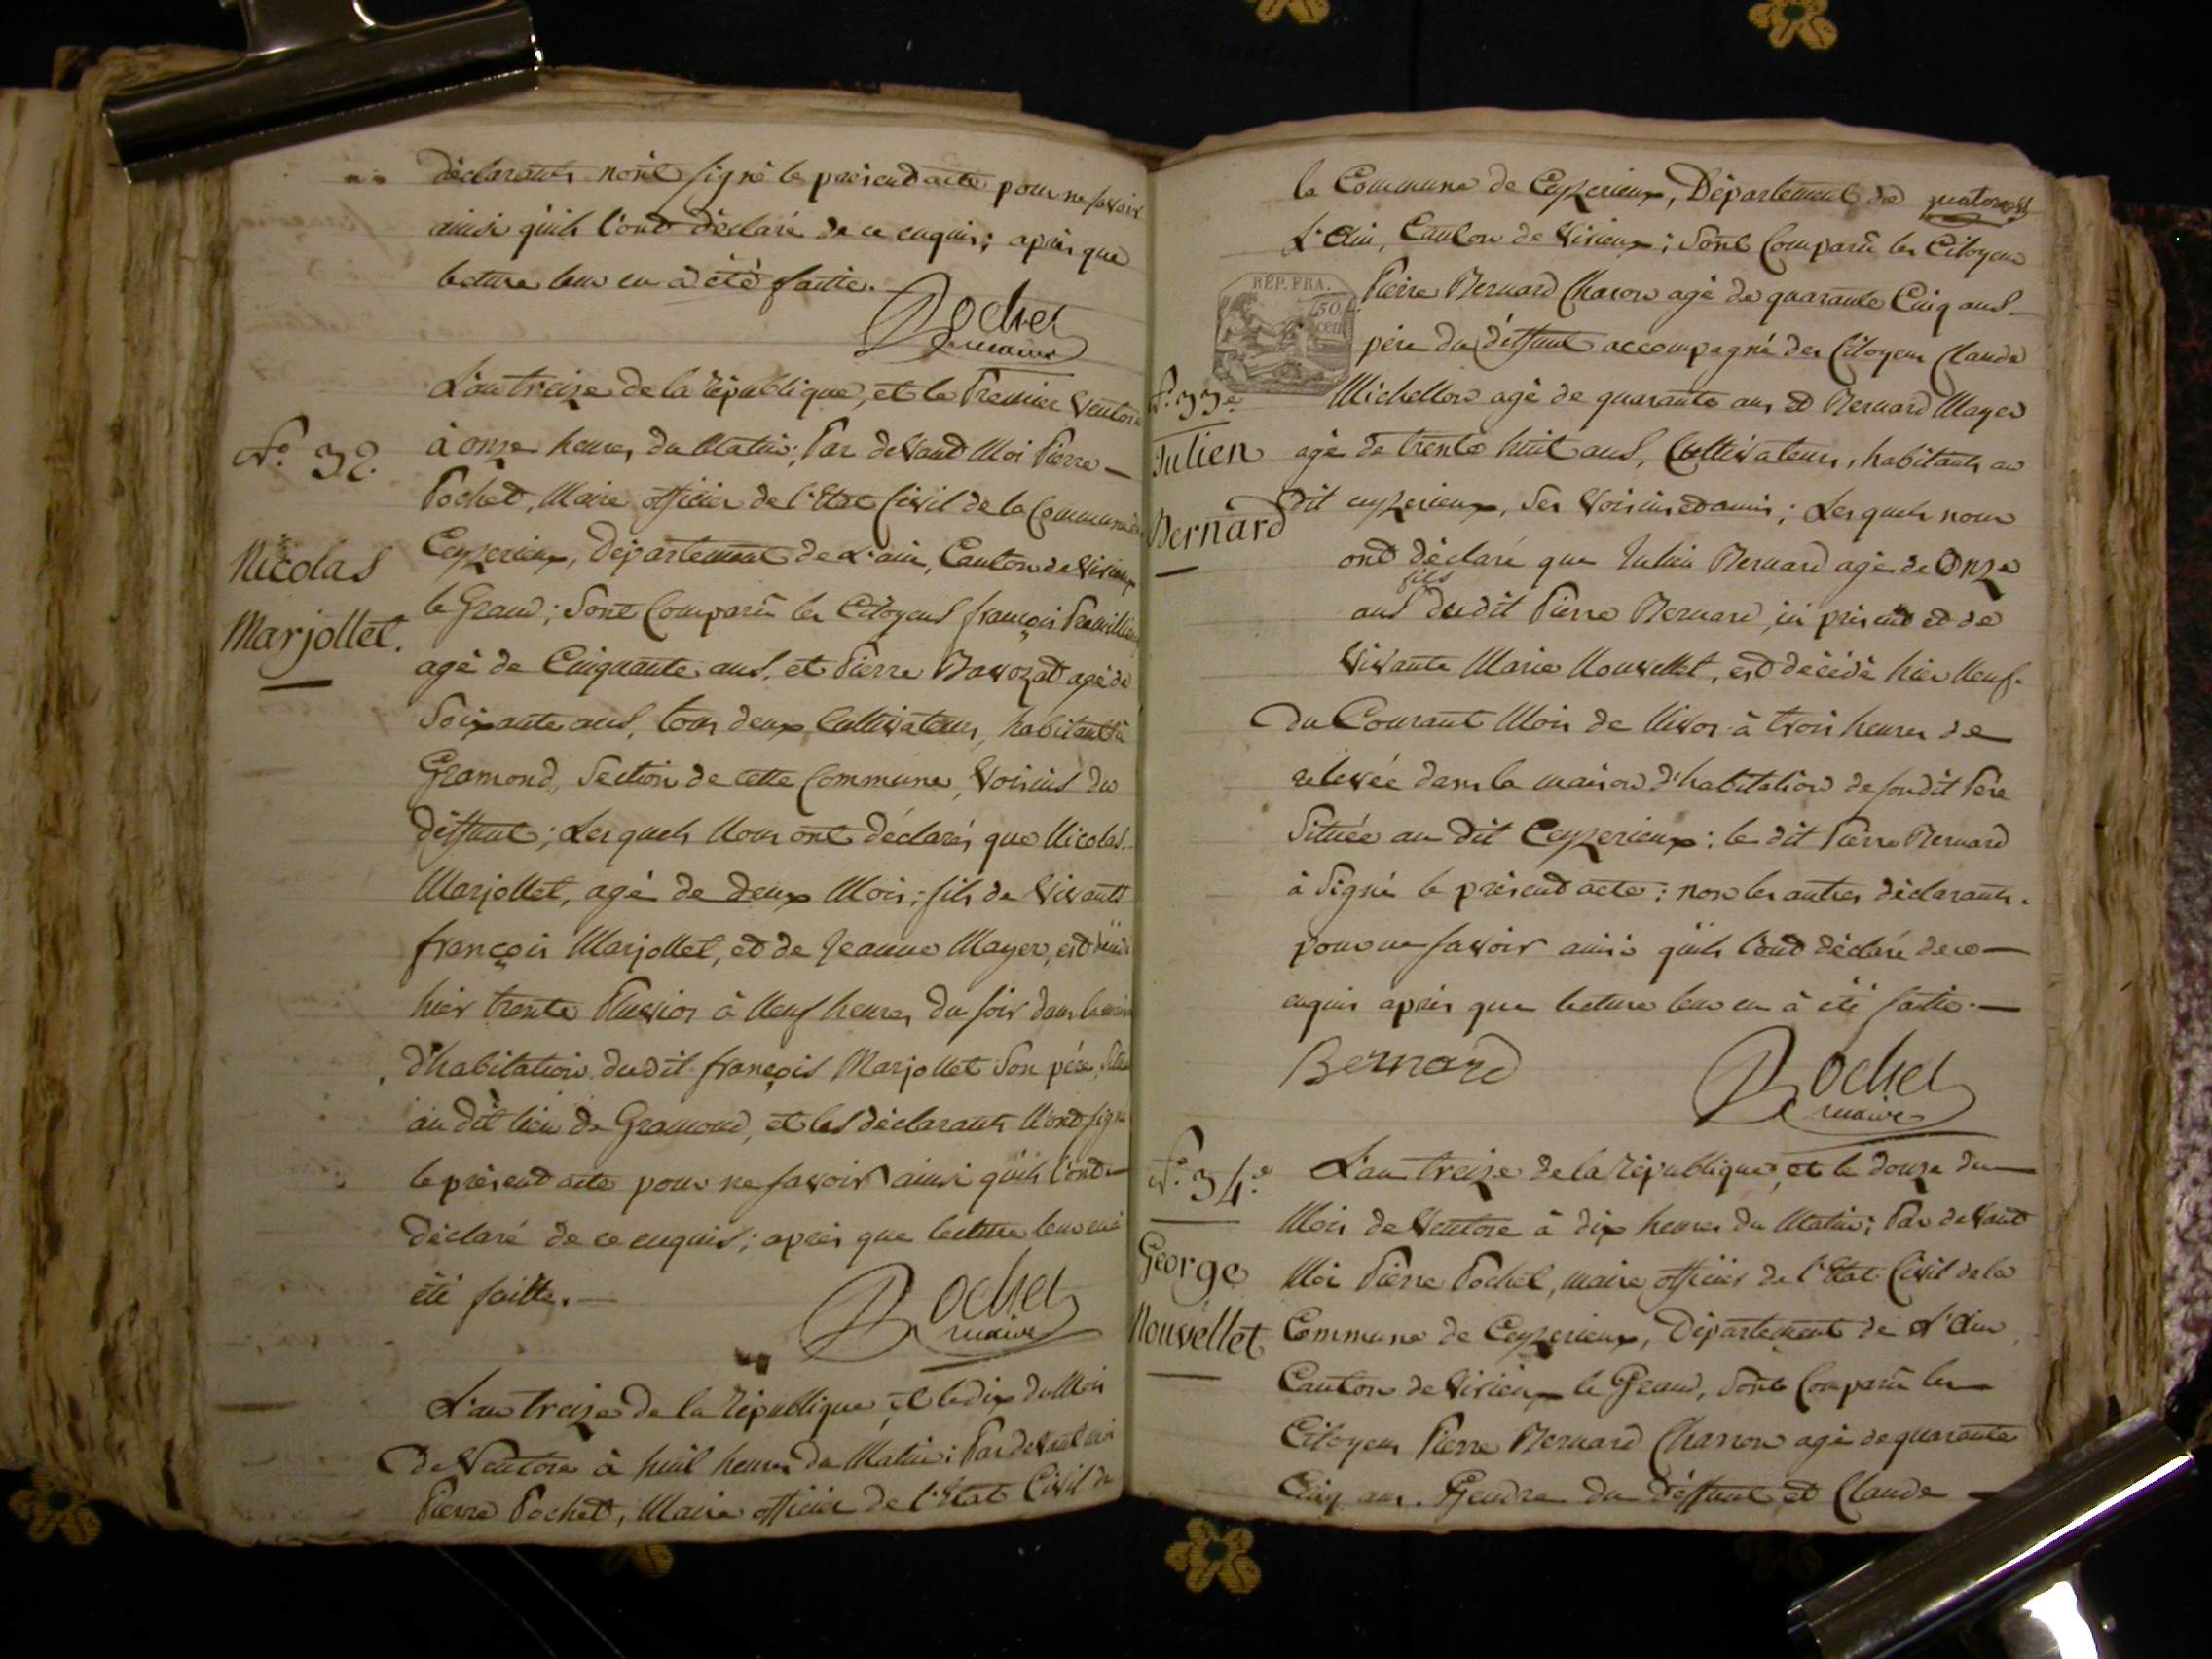 déclarants n'ont signé le présend acte pour ne savoir
ainsi qu'ils l'ond déclaré de ce enquis; après que
lecture leur en a été faitte.
Pochet
maire
L'an treize de la république, et le Premier Ventose
N.º 32.
à onze heures du Matin; Par devand Moi Pierre
Pochet, Maire officier de l'Etat Civil de la Commune de
Nicolas
Marjollet.
Ceyzerieux, Département de L'ain, Canton de Virieux
le Grand; Sont Comparû les Citoyens françois
agé de Cinquante ans, et Pierre Bavozat agé de
Soixante ans, tous deux Cultivateurs, habitants à
Gramond, Section de cette Commune, Voisins du
déffunt; Lesquels Nous ont déclarés que Nicolas
Marjollet, agé de deux Mois; fils de Vivants
françois Marjollet, et de Jeanne Mayer, est
hier trente Pluvios à Neuf heures du soir dans la
d'habitation dudit françois Marjollet Son pére,
au dit lieu de Gramond, et les déclarants N'ond signé
le présend acte pour ne savoir ainsi qu'ils l'ond
déclaré de ce enquis; après que lecture leur en à
été faitte.
Pochet
maire
L'an treize de la république, et le dix du Mois
de Ventose à huit heures du Matin; Par devant moi
Pierre Pochet, Maire officier de l'Etat Civil de
la Commune de Ceyzerieux, Département de quatorze
L'Ain, Canton de Virieux; Sont Comparû les Citoyens
RÉP. FRA.
50
cen
Pierre Bernard Charon agé de quarante Cinq ans
pére du déffunt accompagné des Citoyens Claude
N.º 33.e
Julien
Bernard
Michellon agé de quarante ans et Bernard Mayer
agé de trente huit ans, Cultivateurs, habitants au
dit ceyzerieux, Ses Voisins et amis; Lesquels nous
ont déclaré que Julien Bernard agé de Onze
ans fils dudit Pierre Bernard, ici présend et de
Vivante Marie Nouvellet, est décédé hier Neuf
du Courant Mois de à trois heures de
relevée dans la maison d'habitation de sondit Pére
Située au dit Ceyzerieux: le dit Pierre Bernard
à Signé le présend acte: non les autres déclarants
pour ne savoir ainsi qu'ils l'ond déclaré de ce
enquis après que lecture leur en à été faitte.
Bernard
Pochet
maire
N.º 34.e
George
Nouvellet
L'an treize de la république, et le douze du
Mois de Ventose à dix heures du Matin; Par devant
Moi Pierre Pochet, maire officier de l'Etat Civil de la
Commune de Ceyzerieux, Département de L'Ain
Canton de Virieux le Grand, Sont Comparû les
Citoyens Pierre Bernard Charron agé de quarante
Cinq ans. Gendre du déffunt et Claude